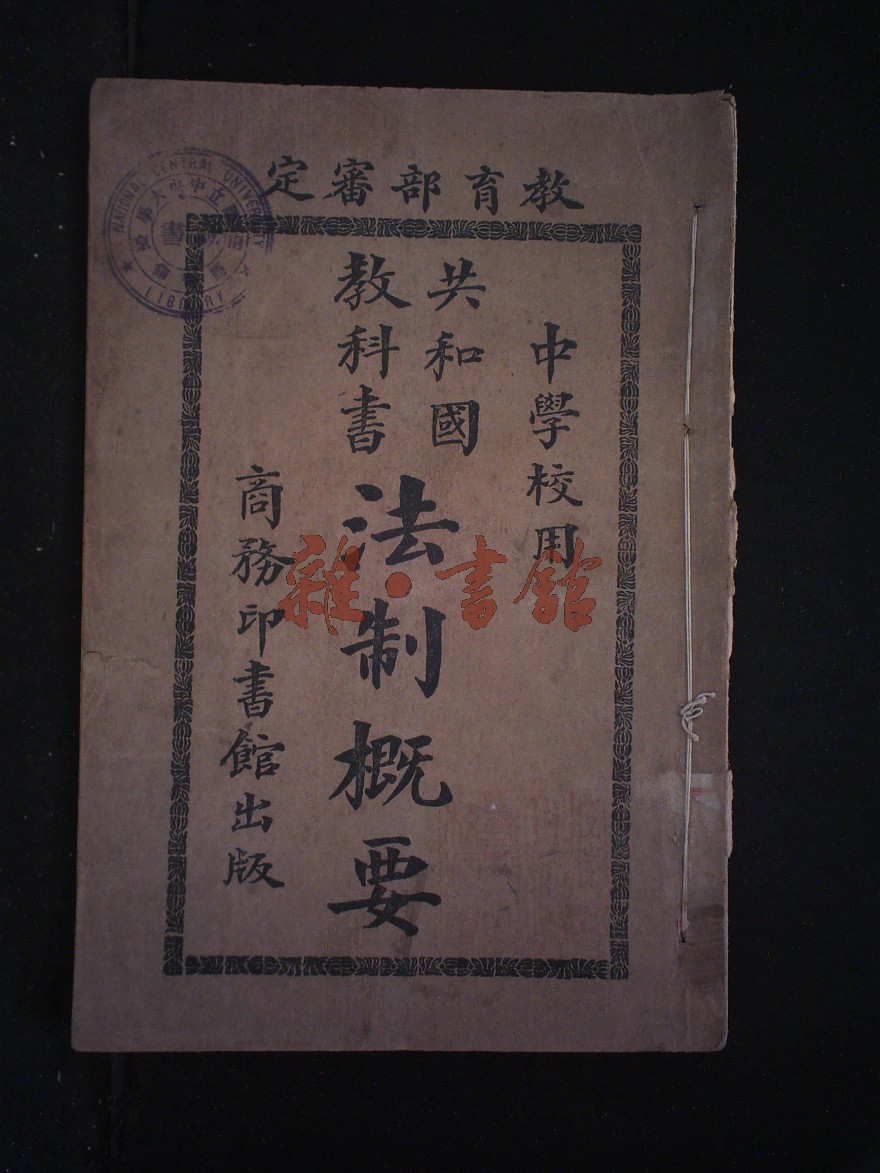 教育部審定
中學校用
共和國
教科書
法制概要
商務印書館出版
NATIONAL CENTRAL UNIVERSITY
LIBRARY
雜·書館